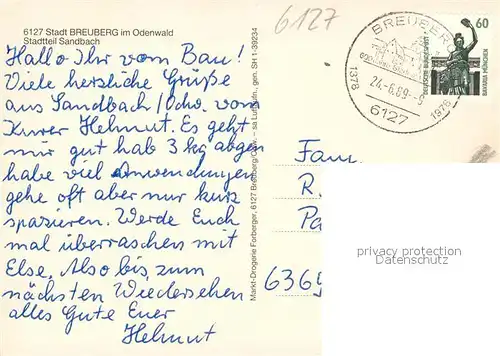 6127 Stadt BREUBERG im Odenwald
Stadtteil Sandbach
Hallo Ihr vom Bau!
Viele herzliche Grüße
aus Sandbach/Odw. vom
Kurer Helmut. Es geht
mir gut hab 3 kg abgen.
habe viel Anwendungen
gehe oft aber nur kurz
spazieren. Werde Euch
mal überraschen mit
Else. Also bis zum
nächsten Wiedersehen
alles Gute Euer
Helmut
Markt-Drogerie Forberger, 6127 Breuberg/Odw. - sa Luftaufn., gen. SH 1-39234
6127
BREUBERG
1378
1978
24.-6.89
6127
60
DEUTSCHE BUNDESPOST
BAVARIA MÜNCHEN
Fam.
R.
Pa
6369
privacy protection
Datenschutz